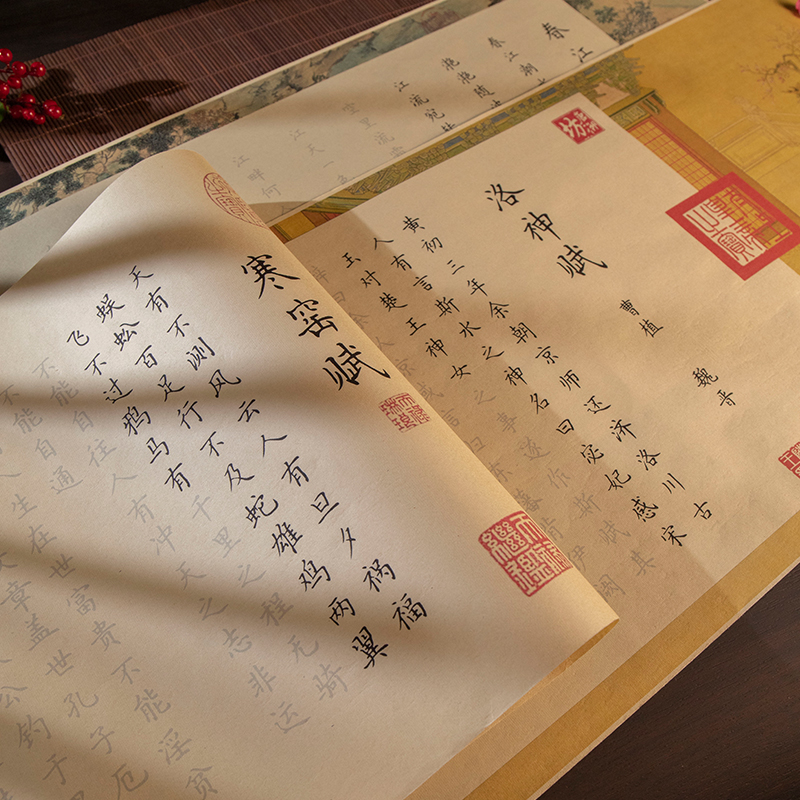 春江
春江潮
滟滟随
江流宛
空里流
江天一
江畔何
洛神赋
曹植
魏晋
黄初三年余朝京师还济洛川古
人有言斯水之神名曰宓妃感宋
玉对楚王神女之事遂作斯赋其
寒窑赋
天有不测风云人有旦夕祸福
蜈蚣百足行不及蛇雄鸡两翼
飞不过鸦马有千里之程无骑
不能自往人有冲天之志非运
不能自通
人生在世富贵不能淫贫
章盖世孔子厄
公钓于